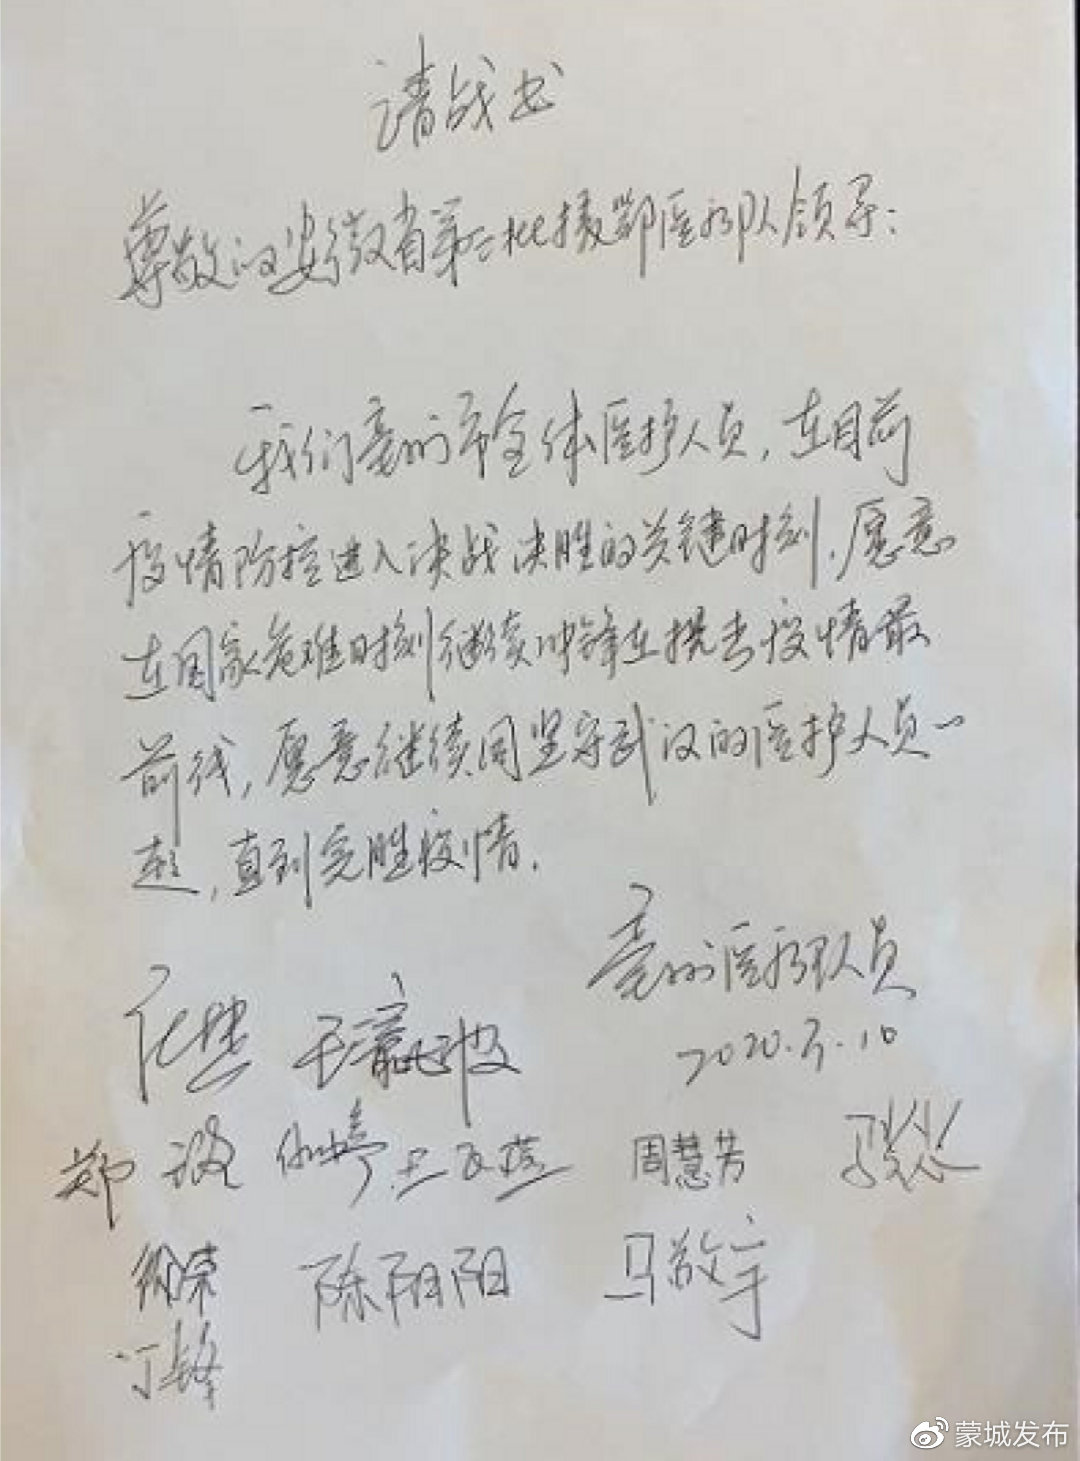 请战书
尊敬的安徽省第二批援鄂医疗队领导：
我们亳州市全体医护人员，在目前
疫情防控进入决战决胜的关键时刻，愿意
在国家危难时刻继续冲锋在抗击疫情最
前线，愿意继续同坚守武汉的医护人员一
起，直到完胜疫情．
亳州医疗队员
2020.3.10
郑 周慧芳
陈阳阳 马敬宇
丁锋
蒙城发布